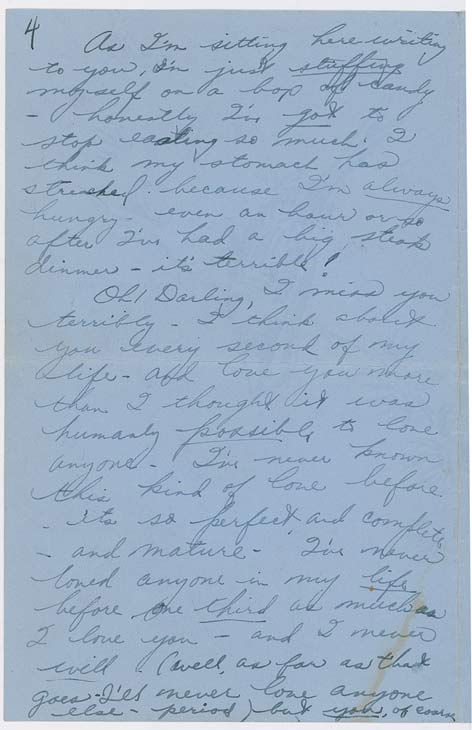 4
As I'm sitting here writing
to you, I'm just stuffing
myself on a box of candy
- honestly I've got to
stop eating so much. I
think my stomach has
streched because I'm always
hungry - even an hour or so
after I've had a big steak
dinner - it's terrible!
Oh! Darling, I miss you
terribly - I think about
you every second of my
life - and love you more
than I thought it was
humanly possible to love
anyone - I've never known
this kind of love before.
- it's so perfect and complete
- and mature - I've never
loved anyone in my life
before one third as much as
I love you - and I never
will. (well, as far as that
goes - I'll never love anyone
else - period) but you, of course